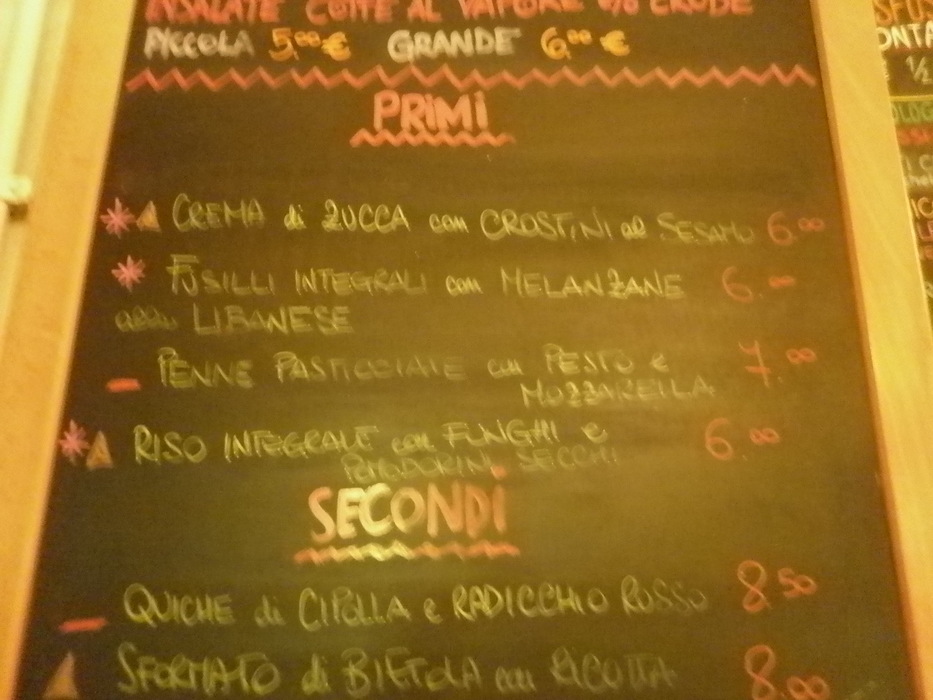 INSALATE COTTE AL VAPORE e/o CRUDE
PICCOLA 5,00 € GRANDE 6,00 €
PRIMI
CREMA di ZUCCA con CROSTINI al SESAMO 6.00
FUSILLI INTEGRALI con MELANZANE 6.-
alla LIBANESE
PENNE PASTICCIATE con PESTO e 7.00
MOZZARELLA
RISO INTEGRALE con FUNGHI e 6.00
POMODORINI SECCHI
SECONDI
QUICHE di CIPOLLA e RADICCHIO ROSSO 8.50
SFORMATO di BIETOLA con RICOTTA 8.00
1/2